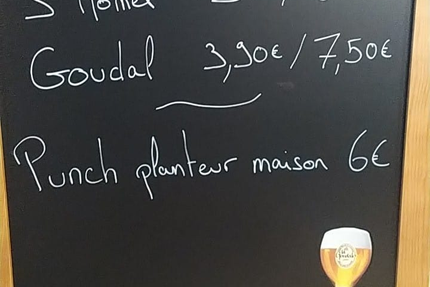 Goudal 3,90€ / 7,50€
Punch planteur maison 6€